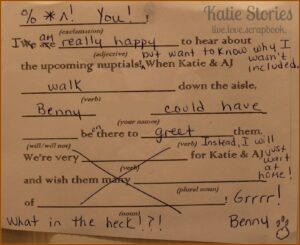 % * ^! You!
Katie Stories
live.love.scrapbook.
(exclamation)
I am really happy to hear about
(adjective)
but want to know why I wasn't included.
the upcoming nuptials! When Katie & AJ
walk down the aisle,
(verb)
Benny could have
(your name)
been there to greet them.
(will/will not) (verb)
Instead, I will just wait at home!
We're very for Katie & AJ
(verb)
and wish them many
(plural noun)
of , Grrrr!
(noun)
What in the heck!?! Benny